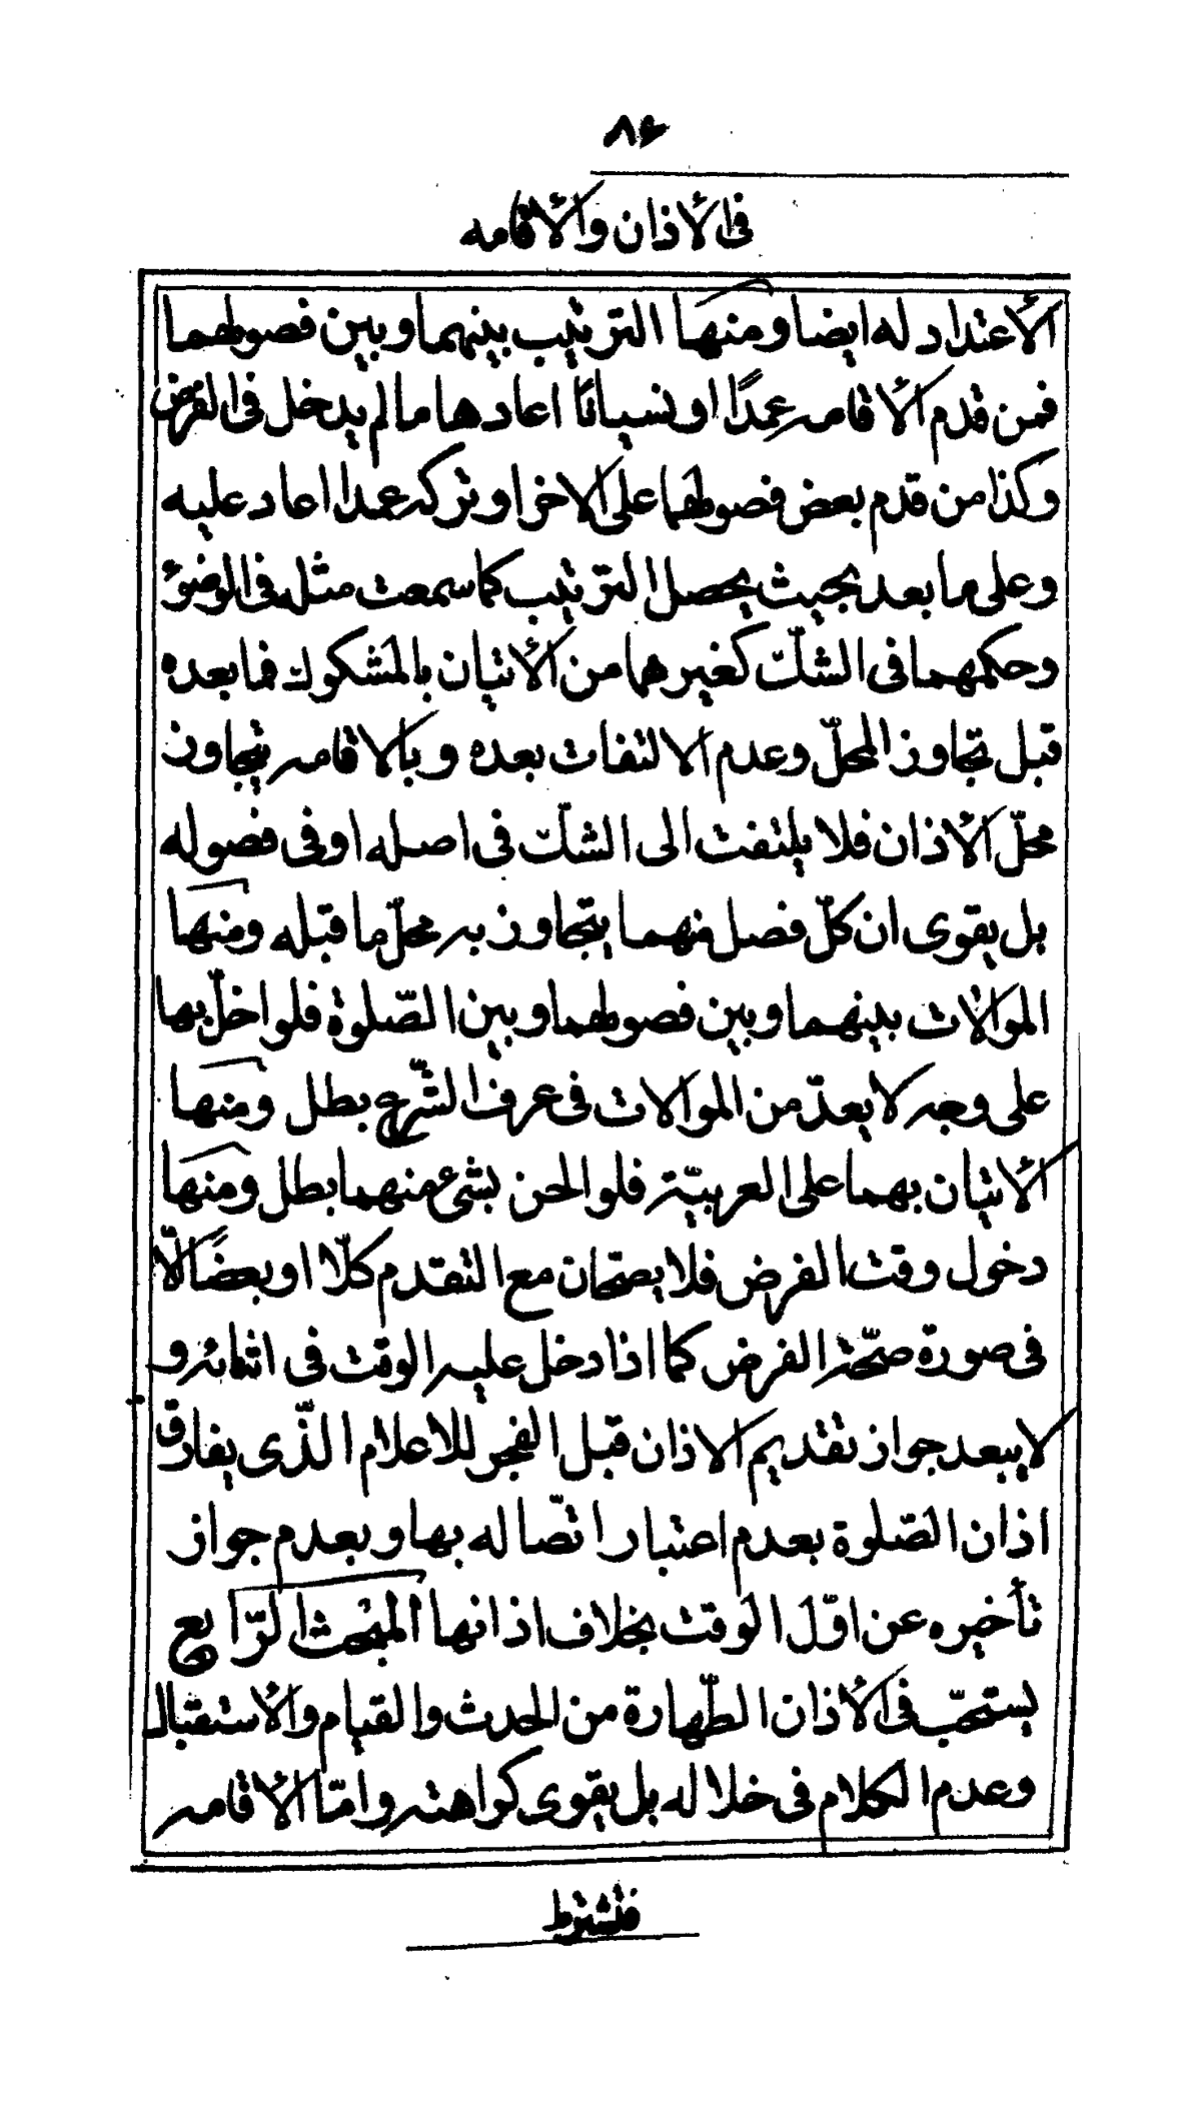 ٨۶
فى الأذان والأقامه
الأعتداد له ايضا ومنها الترتيب بينهما وبين فصولهما
فمن قدم الأقامه عمدًا او نسيانًا اعادها مالم يدخل فى الفرض
وكذا من قدم بعض فصولهما على الاخر او تركه عمدا اعاد عليه
وعلى ما بعد بحيث يحصل الترتيب كما سمعت مثله فى الوضوء
وحكمهما فى الشكّ كغيرهما من الأتيان بالمشكوك فما بعده
قبل تجاوز المحلّ وعدم الالتفات بعده وبالاقامه يتجاوز
محلّ الأذان فلا يلتفت الى الشكّ فى اصله او فى فصوله
بل يقوى ان كلّ فصل منهما يتجاوز به محلّ ما قبله ومنها
الموالات بينهما وبين فصولهما وبين الصّلوة فلو اخلّ بها
على وجه لا يعدّ من الموالات فى عرف الشّرع بطل ومنها
الأتيان بهما على العربيّة فلو الحن بشئ منهما بطل ومنها
دخول وقت الفرض فلا يصحّان مع التقدم كلّا او بعضًا الّا
فى صورة صحّة الفرض كما اذا دخل عليه الوقت فى اثنائه و
لا يبعد جواز تقديم الاذان قبل الفجر للاعلام الّذى يفارق
اذان الصّلوة بعدم اعتبار اتّصاله بها وبعدم جواز
تأخيره عن اوّل الوقت بخلاف اذانها المبحث الرّابع
يستحبّ فى الأذان الطّهارة من الحدث والقيام والأستقبال
وعدم الكلام فى خلاله بل يقوى كراهته وامّا الأقامه
فتشترط